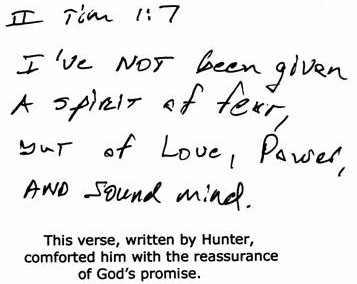 II Tim 1:7
I've NOT been given
A spirit of fear,
but of Love, Power,
AND Sound mind.
This verse, written by Hunter,
comforted him with the reassurance
of God's promise.